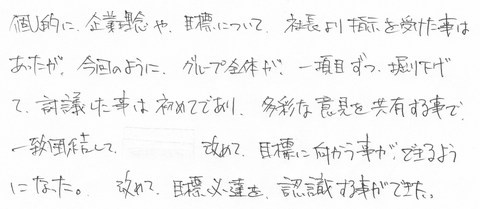 個人的に、企業理念や、目標について、社長より指示を受けた事は
あったが、今回のように、グループ全体が、一項目ずつ、掘り下げ
て、討議した事は初めてであり、多彩な意見を共有する事で、
一致団結して 改めて、目標に向かう事ができるよう
になった。 改めて、目標必達を、認識する事ができた。